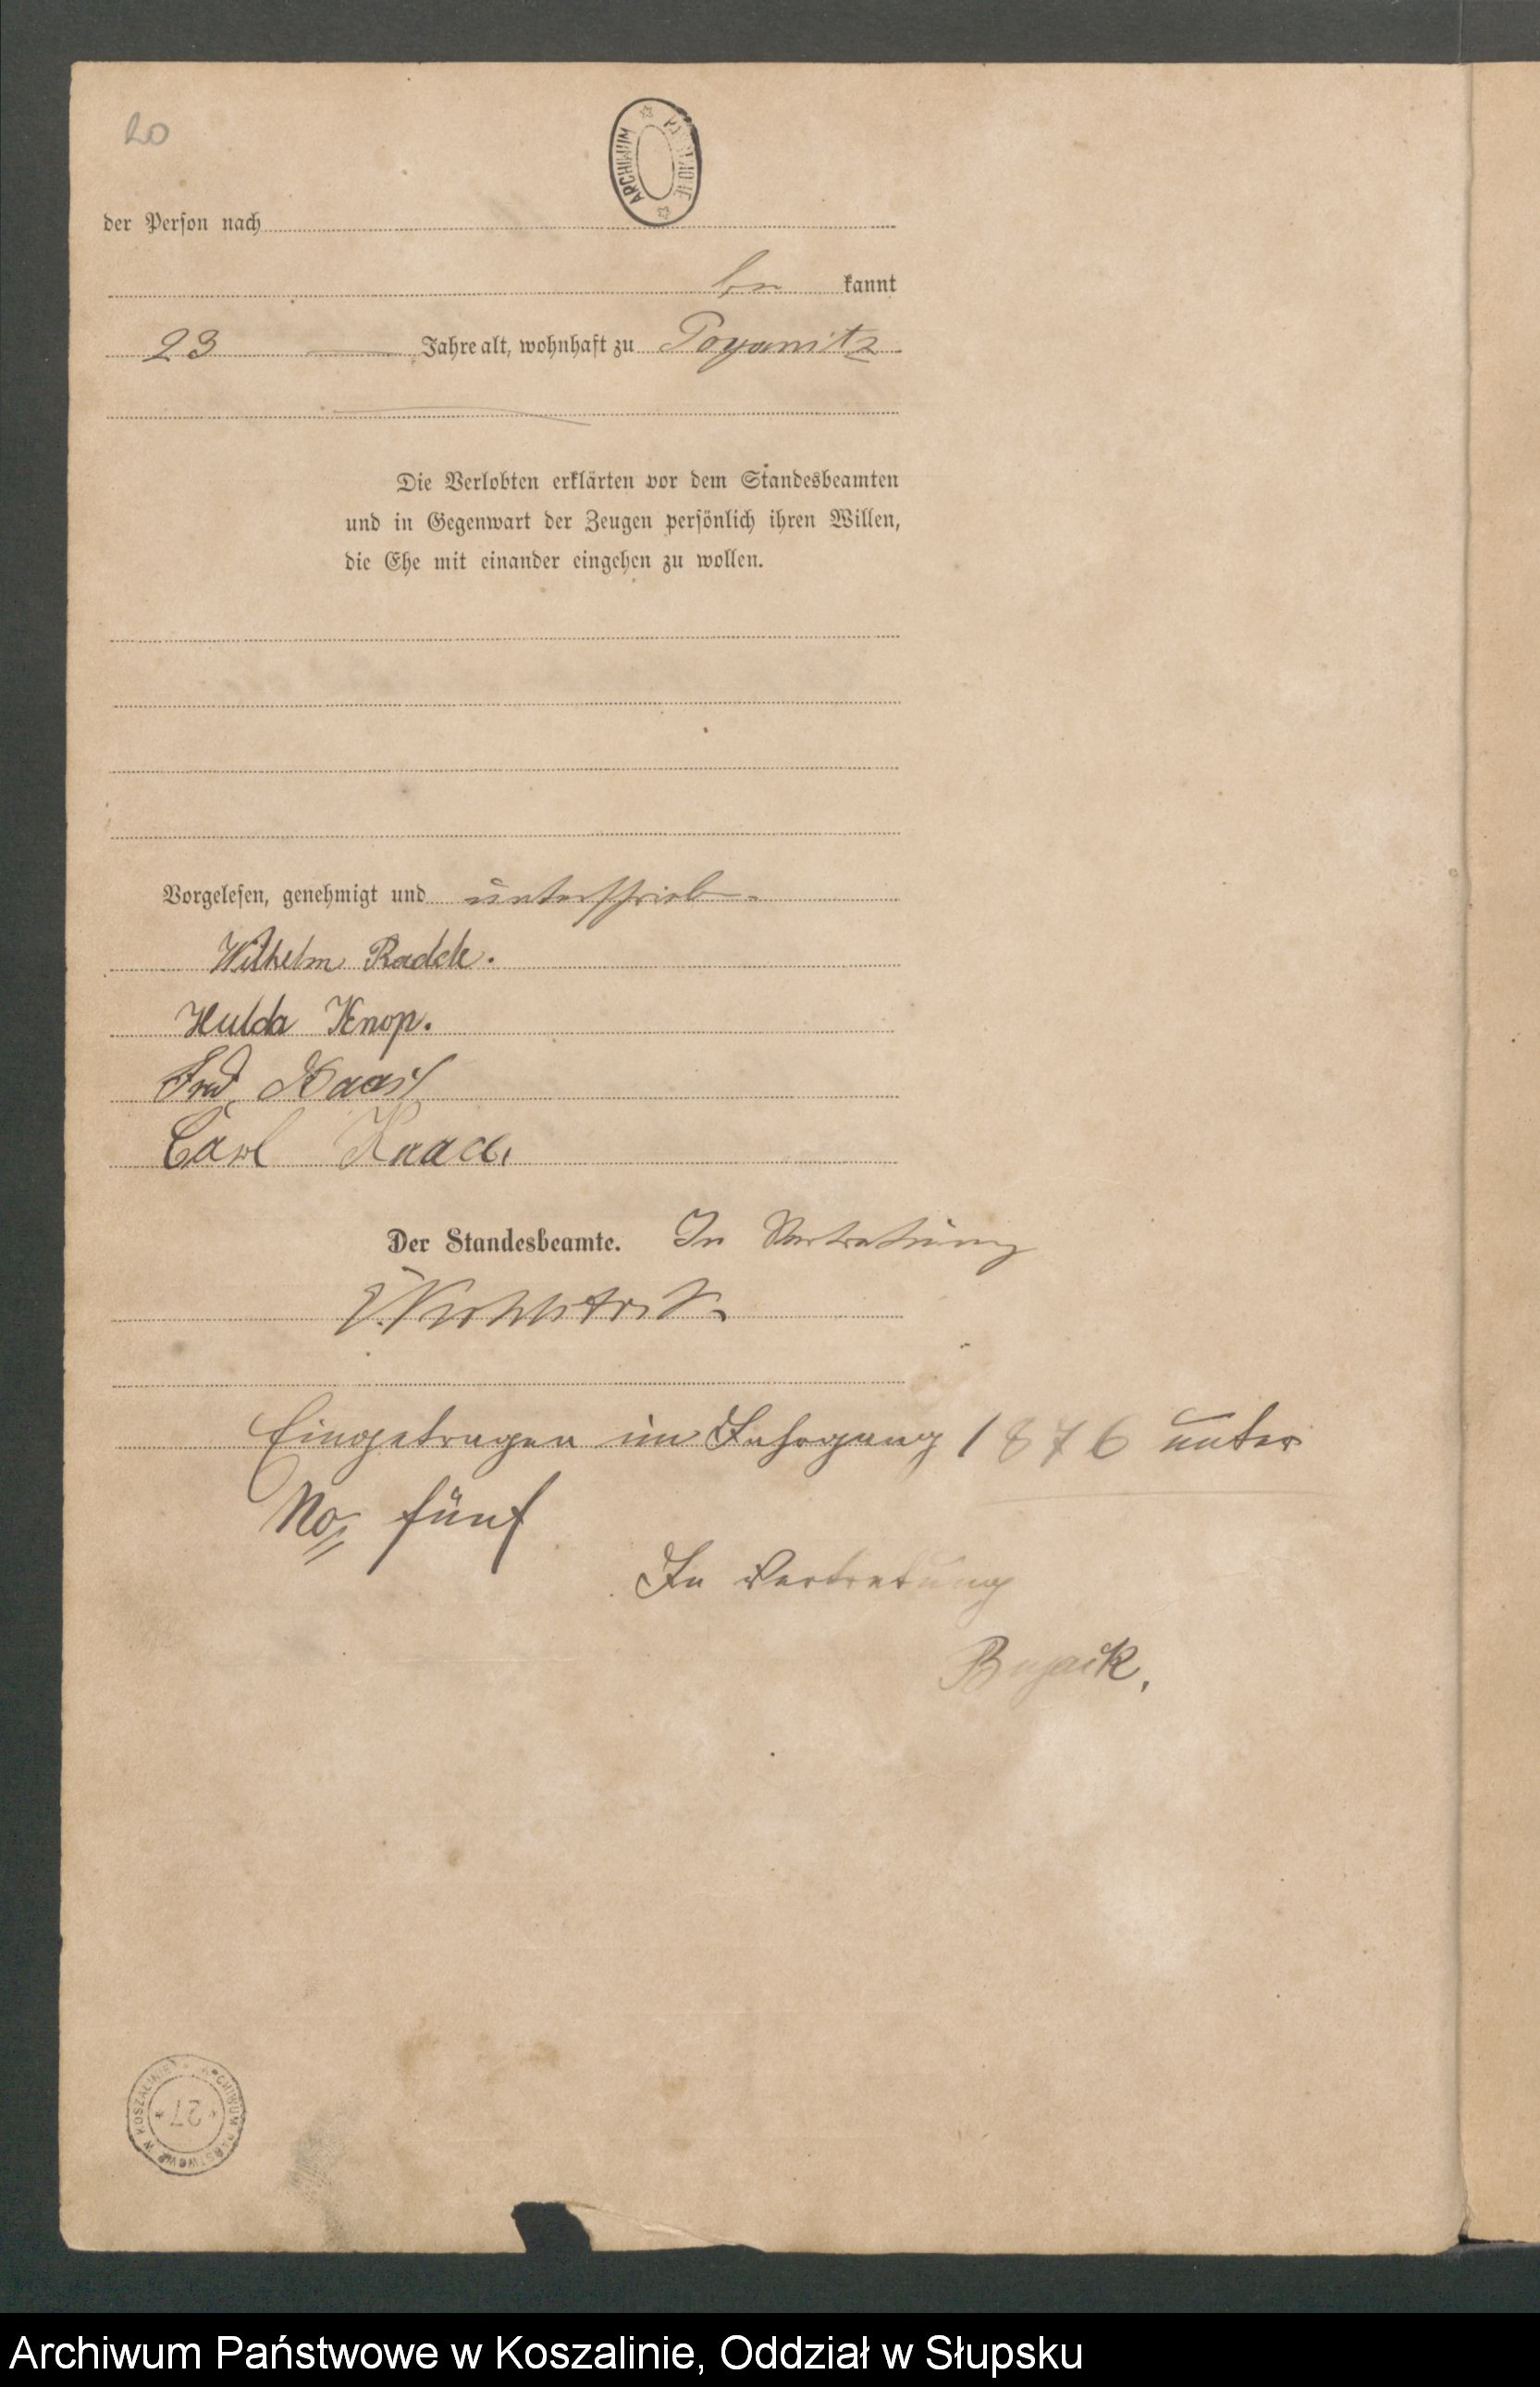 20
ARCHIWUM
der Person nach
be kannt
23 Jahre alt, wohnhaft zu Poganitz
Die Verlobten erklärten vor dem Standesbeamten
und in Gegenwart der Zeugen persönlich ihren Willen,
die Ehe mit einander eingehen zu wollen.
Vorgelesen, genehmigt und unterschrieben
Wilhelm Raddk.
Hulda Knop.
Carl Knack.
Der Standesbeamte. In Vertretung
Eingetragen im Jahrgang 1876 unter
No fünf
In Vertretung
ARCHIWUM PAŃSTWOWE W KOSZALINIE
* 27 *
Archiwum Państwowe w Koszalinie, Oddział w Słupsku